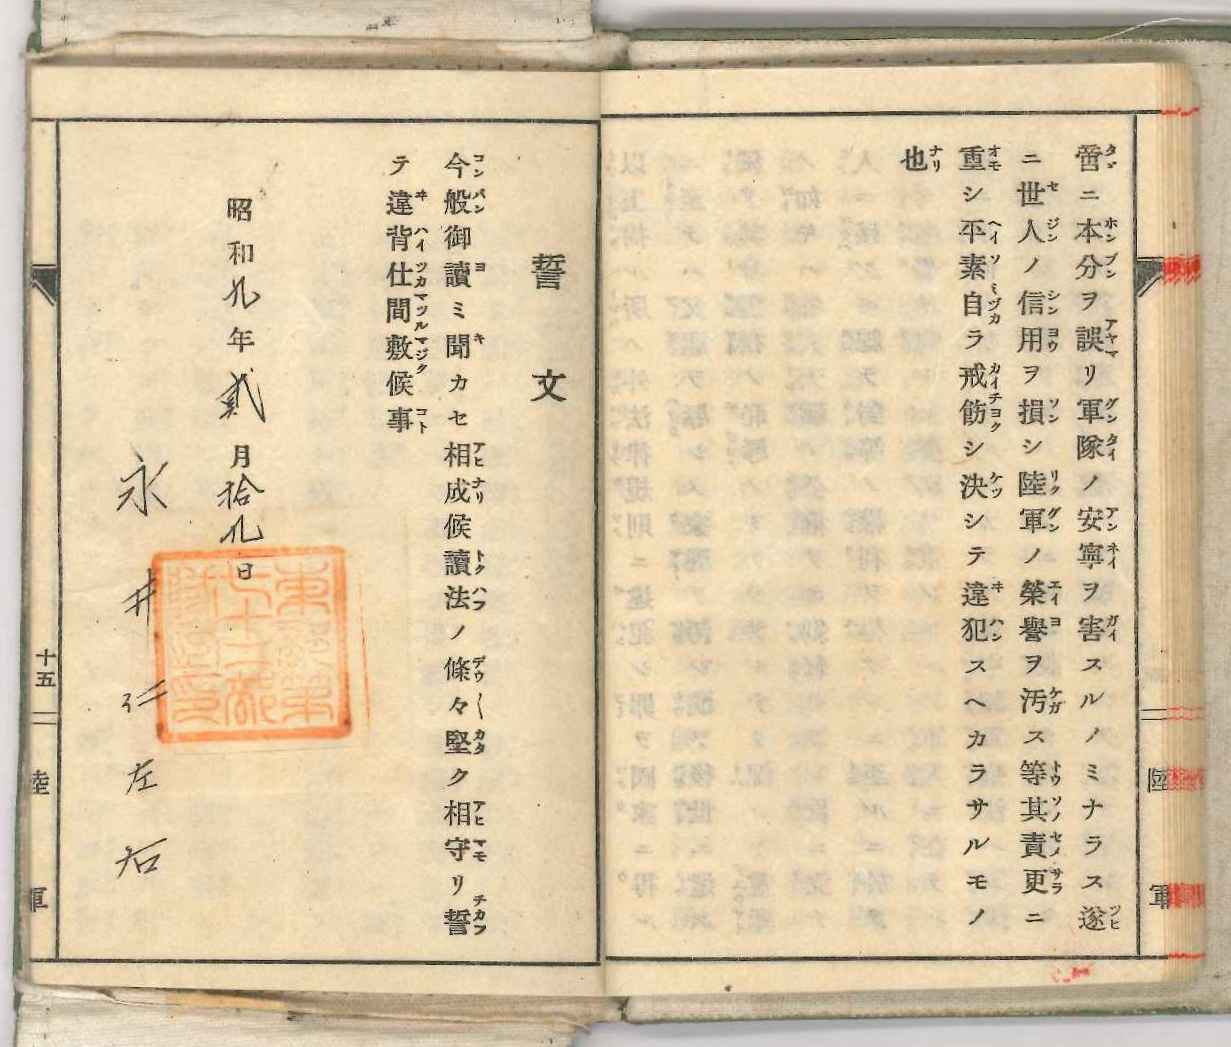 啻ニ本分ヲ誤リ軍隊ノ安寧ヲ害スルノミナラス遂
ニ世人ノ信用ヲ損シ陸軍ノ榮譽ヲ汚ス等其責更ニ
重シ平素自ラ戒飭シ決シテ違犯スヘカラサルモノ
也
陸軍
誓文
今般御讀ミ聞カセ相成候讀法ノ條々堅ク相守リ誓
テ違背仕間敷候事
昭和九年貳月拾九日
永井仁左右
十五
陸軍